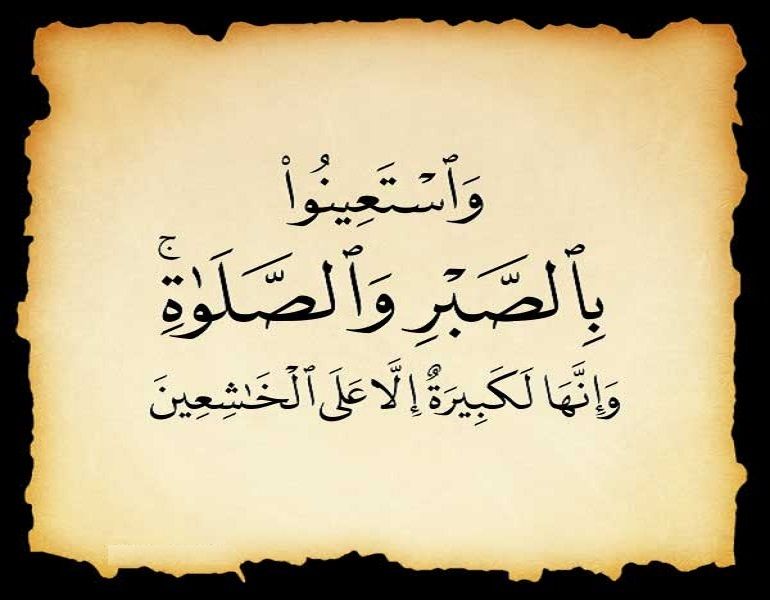 وَٱسۡتَعِينُواْ
بِٱلصَّبۡرِ وَٱلصَّلَوٰةِۚ
وَإِنَّهَا لَكَبِيرَةٌ إِلَّا عَلَى ٱلۡخَٰشِعِينَ